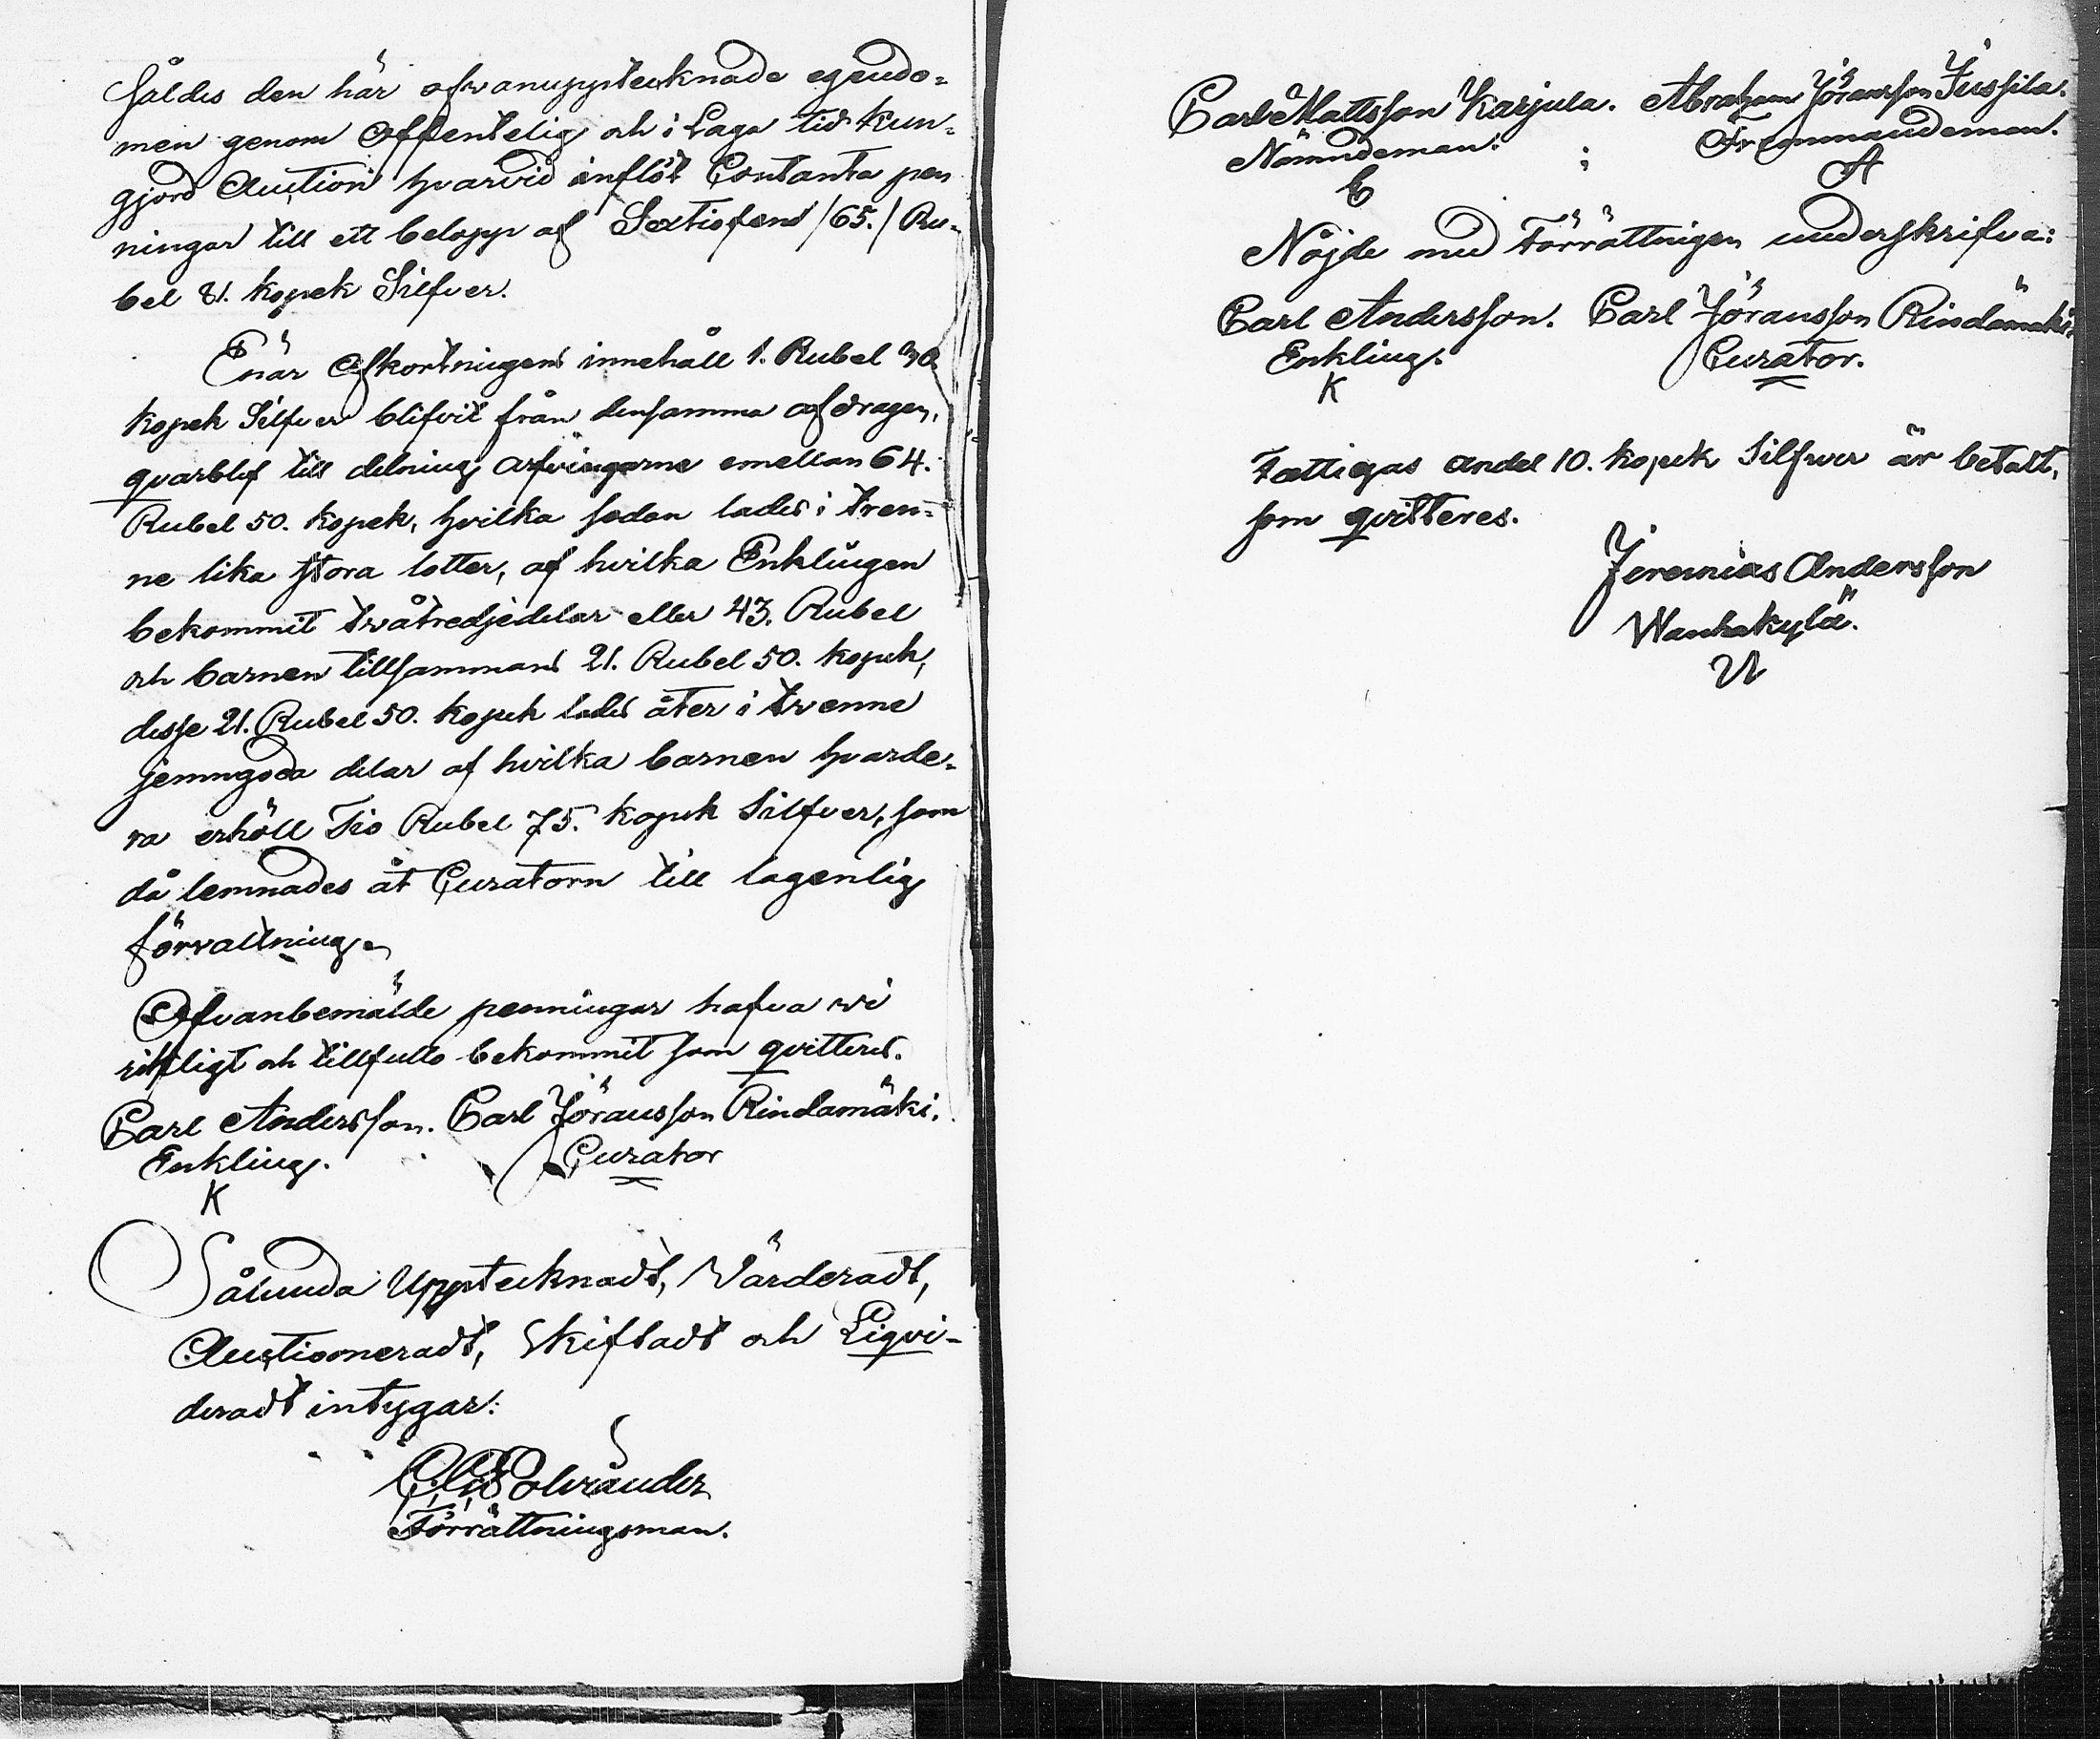 såldes den här ofvanupptecknade egendo=
men genom offentelig och i Laga tid kun=
gjord Auction hvarvid inflöt Contanta pen
ningar till ett belopp af Sextiofem /65./ Ru=
bel 81. kopek Silfver.
Enär afkortningens innehåll 1. Rubel 30
kopek Silfver blifvit från densamma afdragen,
qvarblef till delning arfvingarne emellan 64.
Rubel 50. kopek, hvilka sedan lades i tren=
ne lika stora lotter, af hvilka Enklingen
bekommit tvåtredjedelar eller 43. Rubel
och barnen tillsammans 21. Rubel 50. kopek,
desse 21. Rubel 50. kopek lades åter i tvenne
jemngoda delar af hvilka barnen hvarde=
ra erhöll Tio Rubel 75. kopek Silfver, som
då lemnades åt Curatorn till lagenlig
förvaltning.
Ofvanbemälde penningar hafva wi
riktligt och tillfullo bekommit som qvitteres.
Carl Andersson. Carl Jöransson Rindamäki.
Enkling. Curator
K
Sålunda Upptecknadt, Värderadt,
Auctioneradt, Skiftadt och Liqvi-
deradt intygar:
Förrättningsman.
Carl Mattsson Karjula. Abraham Jöransson Jussila.
Nämndeman. Fremmandeman.
C A
Nöjde med Förrättningen underskrifva:
Carl Andersson. Carl Jöransson Rindamäki.
Enkling. Curator.
K
Fattigas andel 10. kopek Silfwer är betalt,
som qvitteres.
Jeremias Andersson
Wanhakylä.